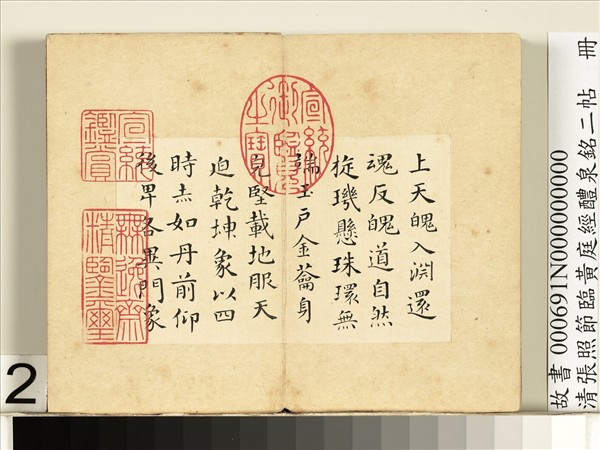 故書 000691N000000000
清張照節臨黃庭經醴泉銘二帖 冊
宣統御覽之寶
上天魄入淵還
魂反魄道自然
旋璣懸珠環無
端玉戶金籥身
堅載地服天
迫乾坤象以四
時赤如丹前仰
後卑各異門象
宣統鑑賞
無逸齋精鑒璽
2